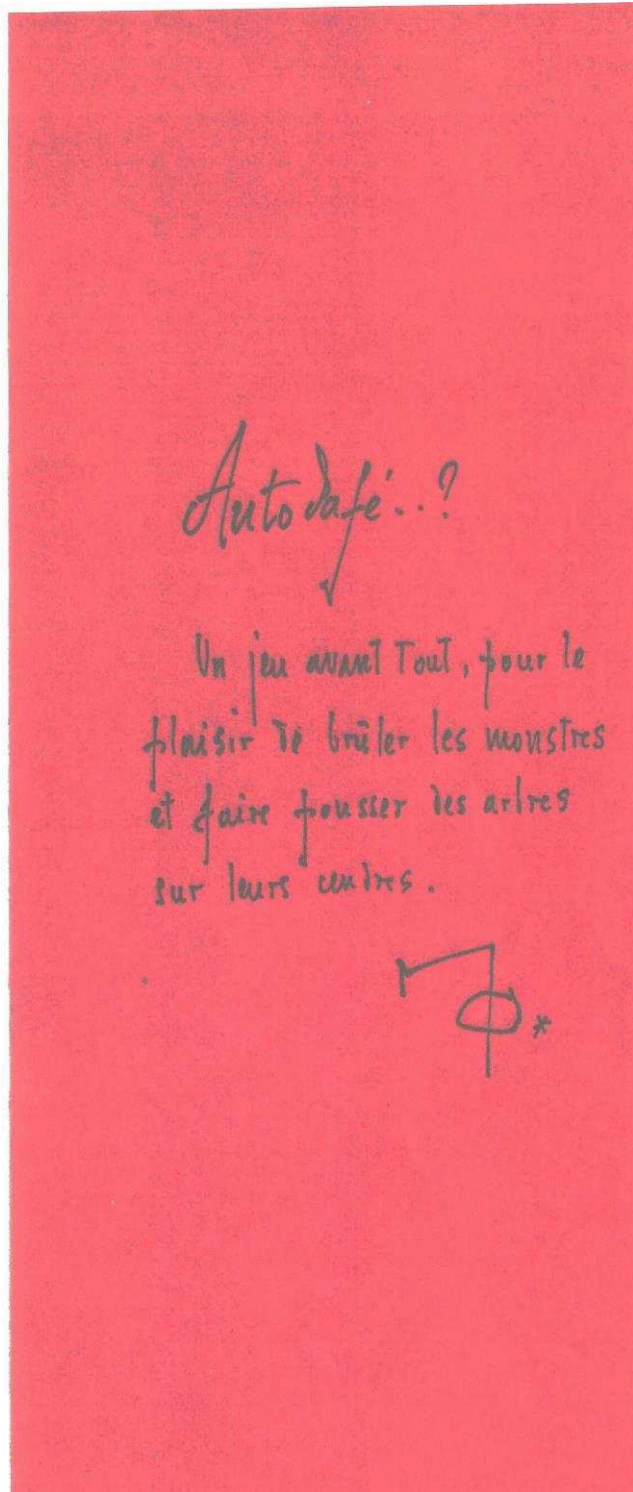 Autodafé..?
Un jeu avant Tout, pour le
plaisir de brûler les monstres
et faire pousser des arbres
sur leurs cendres.